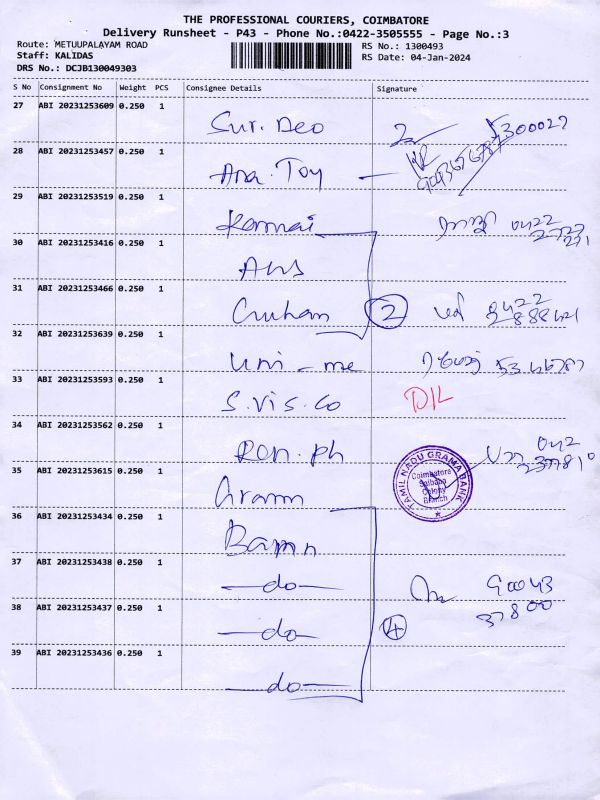 THE PROFESSIONAL COURIERS, COIMBATORE
Delivery Runsheet - P43 - Phone No.:0422-3505555 - Page No.:3
Route: METUUPALAYAM ROAD
Staff: KALIDAS
DRS No.: DCJB130049303
RS No.: 1300493
RS Date: 04-Jan-2024
S No Consignment No Weight PCS Consignee Details Signature
27 ABI 20231253609 0.250 1
Sur. Deo
28 ABI 20231253457 0.250 1
Ana. Toy
29 ABI 20231253519 0.250 1
Kannai 0422
30 ABI 20231253416 0.250 1
AHS
31 ABI 20231253466 0.250 1
2 0422
32 ABI 20231253639 0.250 1
Uni - me
33 ABI 20231253593 0.250 1
S. Vis. Co D/L
34 ABI 20231253562 0.250 1
Ron. Ph
TAMIL NADU GRAMA BANK
Coimbatore
Saibaba
Colony
Branch
35 ABI 20231253615 0.250 1
Gramn
36 ABI 20231253434 0.250 1
Bamn
37 ABI 20231253438 0.250 1
-do- 90043
37800
38 ABI 20231253437 0.250 1
-do- 4
39 ABI 20231253436 0.250 1
-do-